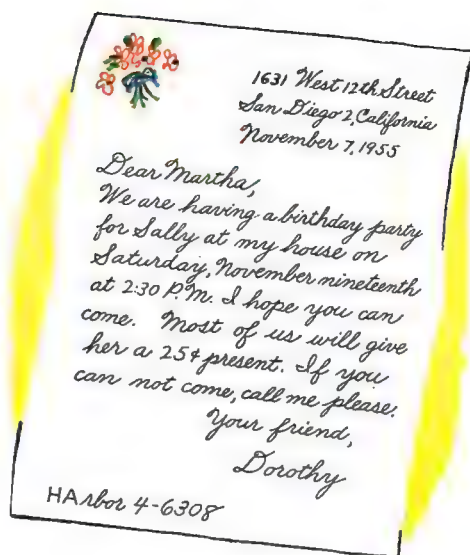 1631 West 12th Street
San Diego 2, California
November 7, 1955
Dear Martha,
We are having a birthday party
for Sally at my house on
Saturday, November nineteenth
at 2:30 P.M. I hope you can
come. Most of us will give
her a 25¢ present. If you
can not come, call me please.
Your friend,
Dorothy
HArbor 4-6308